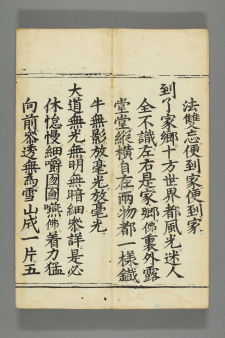 法雙忘便到家便到家
到了家鄉十方世界都風光迷人
全不識左右是家鄉佛裏外露
堂堂縱橫自在兩物都一樣鐵
牛無影放毫光放毫光
大道無光無明無暗細叅詳是必
休憶慢細嚼囫圇嚥佛着力猛
向前叅透無為雪山成一片五